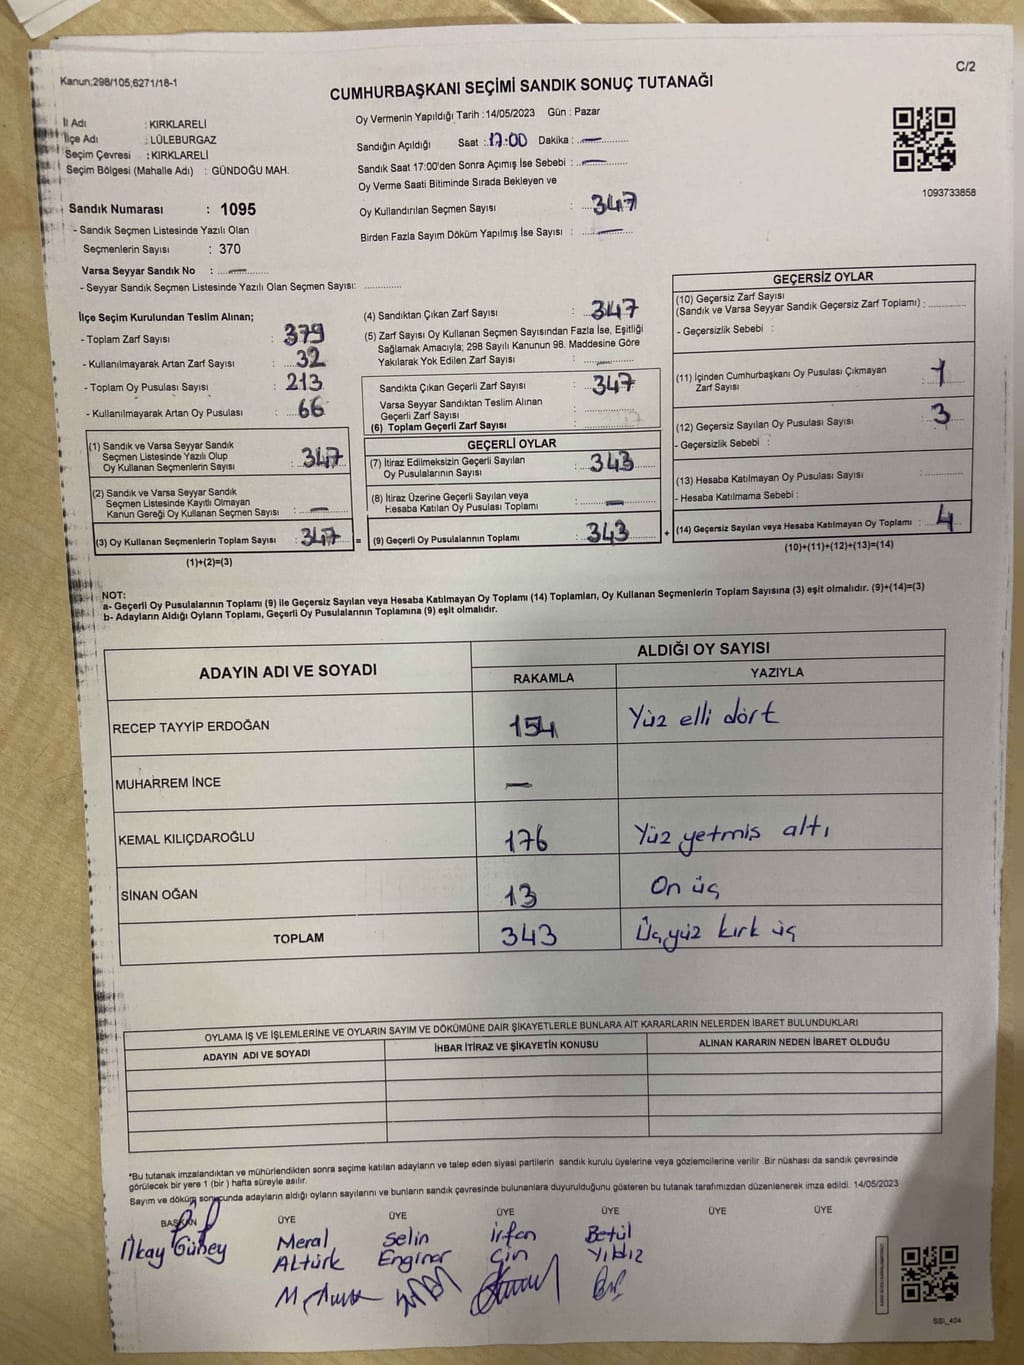 Kanun;298/105;6271/18-1
C/2
CUMHURBAŞKANI SEÇİMİ SANDIK SONUÇ TUTANAĞI
İl Adı : KIRKLARELİ
İlçe Adı : LÜLEBURGAZ
Seçim Çevresi : KIRKLARELİ
Seçim Bölgesi (Mahalle Adı) : GÜNDOĞU MAH.
Sandık Numarası : 1095
- Sandık Seçmen Listesinde Yazılı Olan
Seçmenlerin Sayısı : 370
Varsa Seyyar Sandık No : —
- Seyyar Sandık Seçmen Listesinde Yazılı Olan Seçmen Sayısı:
Oy Vermenin Yapıldığı Tarih :14/05/2023 Gün : Pazar
Sandığın Açıldığı Saat : 17:00 Dakika : —
Sandık Saat 17:00'den Sonra Açımış İse Sebebi : —
Oy Verme Saati Bitiminde Sırada Bekleyen ve
Oy Kullandırılan Seçmen Sayısı : 347
Birden Fazla Sayım Döküm Yapılmış İse Sayısı : —
1093733858
İlçe Seçim Kurulundan Teslim Alınan;
- Toplam Zarf Sayısı : 379
- Kullanılmayarak Artan Zarf Sayısı : 32
- Toplam Oy Pusulası Sayısı : 213
- Kullanılmayarak Artan Oy Pusulası : 66
(1) Sandık ve Varsa Seyyar Sandık
Seçmen Listesinde Yazılı Olup
Oy Kullanan Seçmenlerin Sayısı : 347
(2) Sandık ve Varsa Seyyar Sandık
Seçmen Listesinde Kayıtlı Olmayan
Kanun Gereği Oy Kullanan Seçmen Sayısı : —
(3) Oy Kullanan Seçmenlerin Toplam Sayısı : 347 =
(1)+(2)=(3)
(4) Sandıktan Çıkan Zarf Sayısı : 347
(5) Zarf Sayısı Oy Kullanan Seçmen Sayısından Fazla İse, Eşitliği
Sağlamak Amacıyla; 298 Sayılı Kanunun 98. Maddesine Göre
Yakılarak Yok Edilen Zarf Sayısı : —
Sandıkta Çıkan Geçerli Zarf Sayısı : 347
Varsa Seyyar Sandıktan Teslim Alınan
Geçerli Zarf Sayısı :
(6) Toplam Geçerli Zarf Sayısı :
GEÇERLİ OYLAR
(7) İtiraz Edilmeksizin Geçerli Sayılan
Oy Pusulalarının Sayısı : 343
(8) İtiraz Üzerine Geçerli Sayılan veya
Hesaba Katılan Oy Pusulası Toplamı : —
(9) Geçerli Oy Pusulalarının Toplamı : 343 +
GEÇERSİZ OYLAR
(10) Geçersiz Zarf Sayısı
(Sandık ve Varsa Seyyar Sandık Geçersiz Zarf Toplamı) :
- Geçersizlik Sebebi :
(11) İçinden Cumhurbaşkanı Oy Pusulası Çıkmayan
Zarf Sayısı : 1
(12) Geçersiz Sayılan Oy Pusulası Sayısı : 3
- Geçersizlik Sebebi :
(13) Hesaba Katılmayan Oy Pusulası Sayısı :
- Hesaba Katılmama Sebebi :
(14) Geçersiz Sayılan veya Hesaba Katılmayan Oy Toplamı : 4
(10)+(11)+(12)+(13)=(14)
NOT:
a- Geçerli Oy Pusulalarının Toplamı (9) ile Geçersiz Sayılan veya Hesaba Katılmayan Oy Toplamı (14) Toplamları, Oy Kullanan Seçmenlerin Toplam Sayısına (3) eşit olmalıdır. (9)+(14)=(3)
b- Adayların Aldığı Oyların Toplamı, Geçerli Oy Pusulalarının Toplamına (9) eşit olmalıdır.
ADAYIN ADI VE SOYADI
ALDIĞI OY SAYISI
RAKAMLA YAZIYLA
RECEP TAYYİP ERDOĞAN 154 Yüz elli dört
MUHARREM İNCE —
KEMAL KILIÇDAROĞLU 176 Yüz yetmiş altı
SİNAN OĞAN 13 On üç
TOPLAM 343 Üçyüz kırk üç
OYLAMA İŞ VE İŞLEMLERİNE VE OYLARIN SAYIM VE DÖKÜMÜNE DAİR ŞİKAYETLERLE BUNLARA AİT KARARLARIN NELERDEN İBARET BULUNDUKLARI
ADAYIN ADI VE SOYADI İHBAR İTİRAZ VE ŞİKAYETİN KONUSU ALINAN KARARIN NEDEN İBARET OLDUĞU
*Bu tutanak imzalandıktan ve mühürlendikten sonra seçime katılan adayların ve talep eden siyasi partilerin sandık kurulu üyelerine veya gözlemcilerine verilir .Bir nüshası da sandık çevresinde
görülecek bir yere 1 (bir ) hafta süreyle asılır.
Sayım ve döküm sonucunda adayların aldığı oyların sayılarını ve bunların sandık çevresinde bulunanlara duyurulduğunu gösteren bu tutanak tarafımızdan düzenlenerek imza edildi. 14/05/2023
BAŞKAN ÜYE ÜYE ÜYE ÜYE ÜYE ÜYE
İlkay Güney
Meral Altürk
Selin Enginer
İrfan Çin
Betül Yıldız
SSI_404